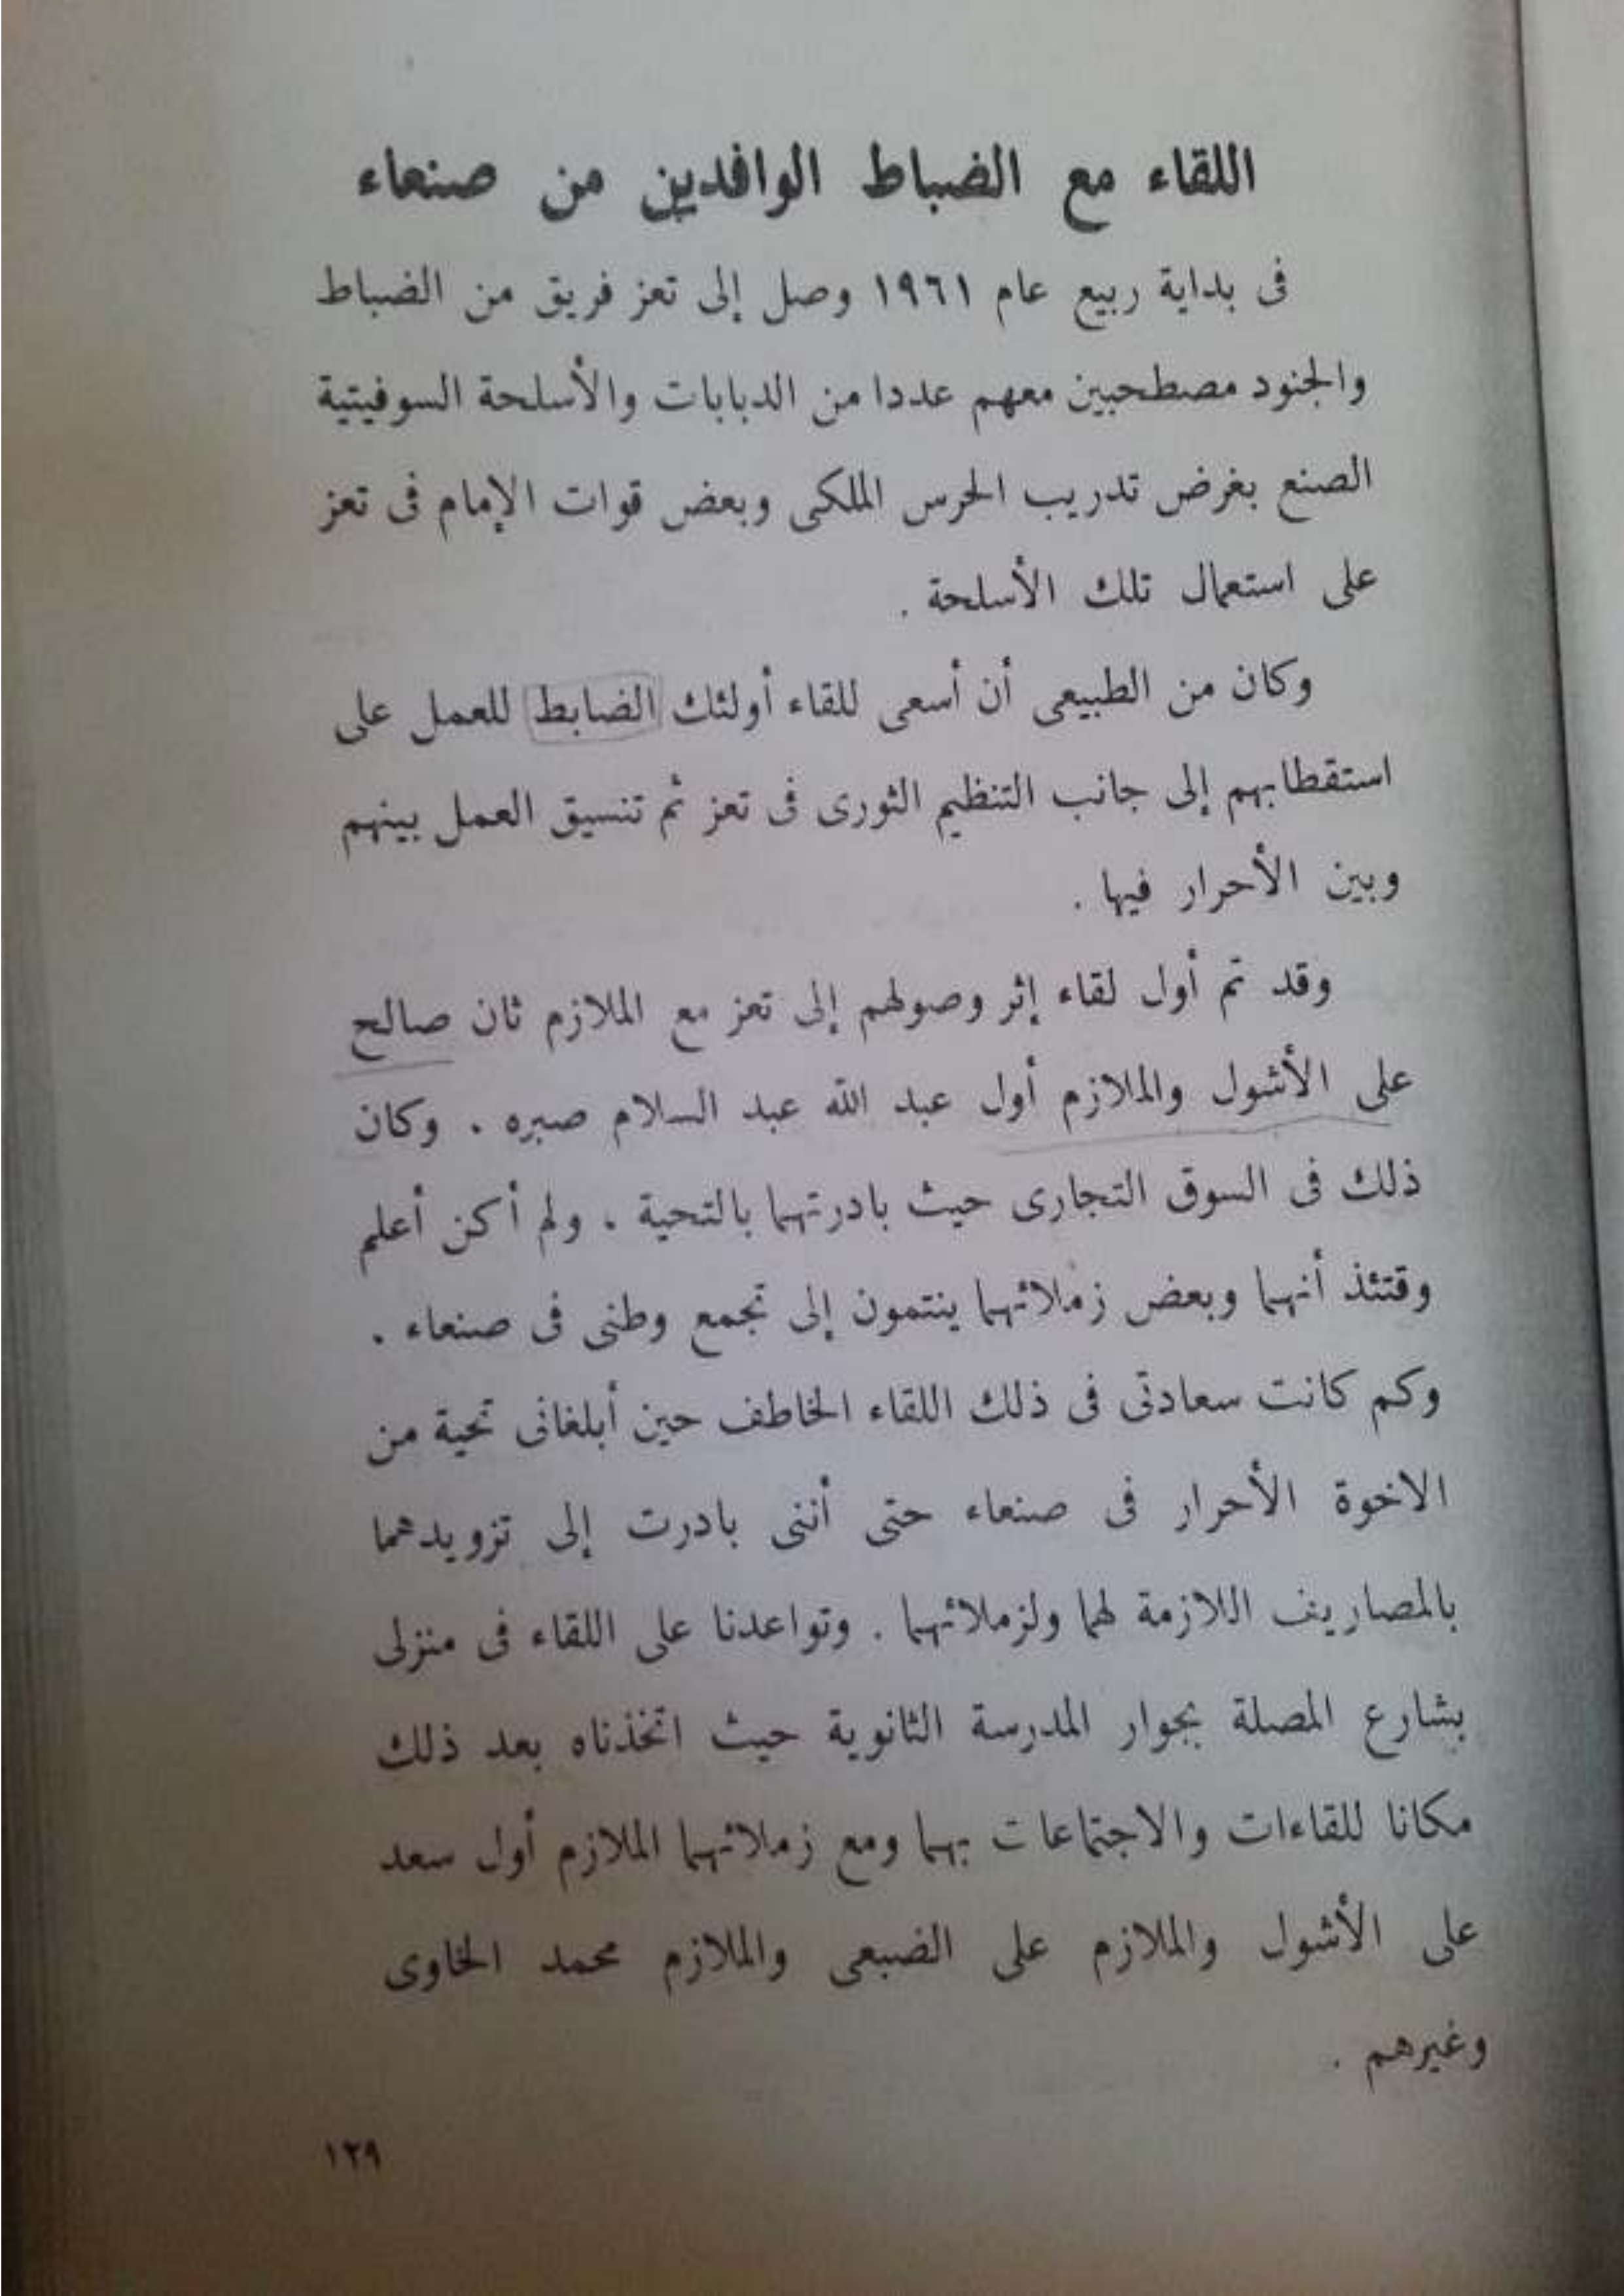 اللقاء مع الضباط الوافدين من صنعاء
فى بداية ربيع عام ١٩٦١ وصل إلى تعز فريق من الضباط
والجنود مصطحبين معهم عددا من الدبابات والأسلحة السوفيتية
الصنع بغرض تدريب الحرس الملكى وبعض قوات الإمام فى تعز
على استعمال تلك الأسلحة .
وكان من الطبيعى أن أسعى للقاء أولئك الضابط للعمل على
استقطابهم إلى جانب التنظيم الثورى فى تعز ثم تنسيق العمل بينهم
وبين الأحرار فيها .
وقد تم أول لقاء إثر وصولهم إلى تعز مع الملازم ثان صالح
على الأشول والملازم أول عبد الله عبد السلام صبره . وكان
ذلك فى السوق التجارى حيث بادرتهما بالتحية . ولم أكن أعلم
وقتئذ أنهما وبعض زملائهما ينتمون إلى تجمع وطنى فى صنعاء .
وكم كانت سعادتى فى ذلك اللقاء الخاطف حين أبلغانى تحية من
الاخوة الأحرار فى صنعاء حتى أننى بادرت إلى تزويدهما
بالمصاريف اللازمة لهما ولزملائهما . وتواعدنا على اللقاء فى منزلى
بشارع المصلة بجوار المدرسة الثانوية حيث اتخذناه بعد ذلك
مكانا للقاءات والاجتماعات بهما ومع زملائهما الملازم أول سعد
على الأشول والملازم على الضبعى والملازم محمد الخاوى
وغيرهم .
١٢٩